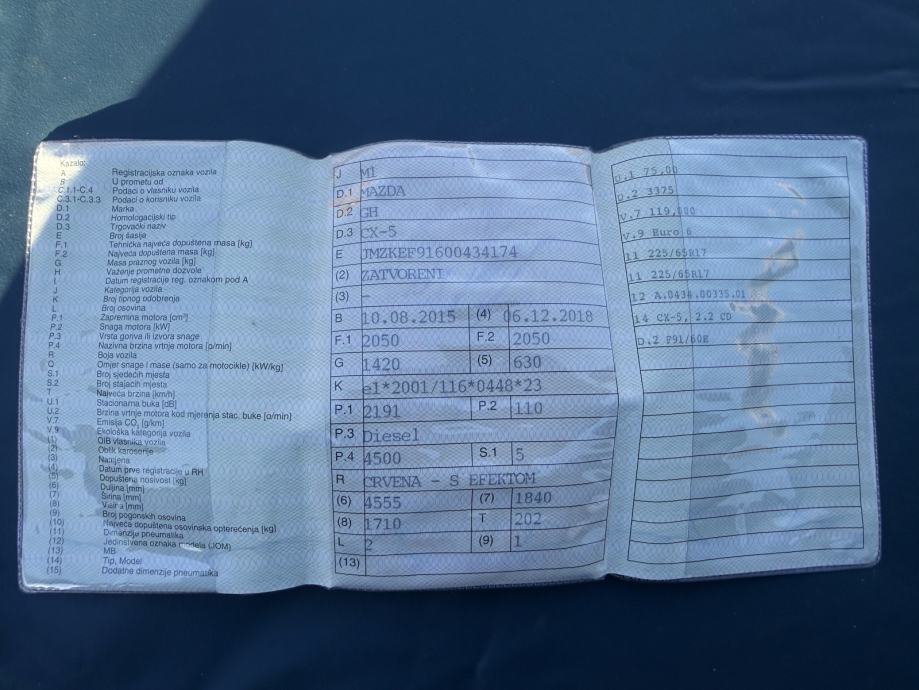 Kazalo:
A Registracijska oznaka vozila
B U prometu od
C.1.1-C.4 Podaci o vlasniku vozila
C.3.1-C.3.3 Podaci o korisniku vozila
D.1 Marka
D.2 Homologacijski tip
D.3 Trgovački naziv
E Broj šasije
F.1 Tehnička najveća dopuštena masa [kg]
F.2 Najveća dopuštena masa [kg]
G Masa praznog vozila [kg]
H Važenje prometne dozvole
I Datum registracije reg. oznakom pod A
J Kategorija vozila
K Broj tipnog odobrenja
L Broj osovina
P.1 Zapremina motora [cm³]
P.2 Snaga motora [kW]
P.3 Vrsta goriva ili izvora snage
P.4 Nazivna brzina vrtnje motora [o/min]
R Boja vozila
Q Omjer snage i mase (samo za motocikle) [kW/kg]
S.1 Broj sjedećih mjesta
S.2 Broj stajaćih mjesta
T Najveća brzina [km/h]
U.1 Stacionarna buka [dB]
U.2 Brzina vrtnje motora kod mjerenja stac. buke [o/min]
V.7 Emisija CO₂ [g/km]
V.9 Ekološka kategorija vozila
(1) OIB vlasnika vozila
(2) Oblik karoserije
(3) Namjena
(4) Datum prve registracije u RH
(5) Dopuštena nosivost [kg]
(6) Duljina [mm]
(7) Širina [mm]
(8) Visina [mm]
(9) Broj pogonskih osovina
(10) Najveća dopuštena osovinska opterećenja [kg]
(11) Dimenzije pneumatika
(12) Jedinstvena oznaka modela (JOM)
(13) MB
(14) Tip, Model
(15) Dodatne dimenzije pneumatika
J M1
D.1 MAZDA
D.2 GH
D.3 CX-5
E JMZKEF91600434174
(2) ZATVORENI
(3) -
B 10.08.2015 (4) 06.12.2018
F.1 2050 F.2 2050
G 1420 (5) 630
K e1*2001/116*0448*23
P.1 2191 P.2 110
P.3 Diesel
P.4 4500 S.1 5
R CRVENA - S EFEKTOM
(6) 4555 (7) 1840
(8) 1710 T 202
L 2 (9) 1
(13)
U.1 75,00
U.2 3375
V.7 119,000
V.9 Euro 6
11 225/65R17
11 225/65R17
12 A.0434.00335.01
14 CX-5, 2.2 CD